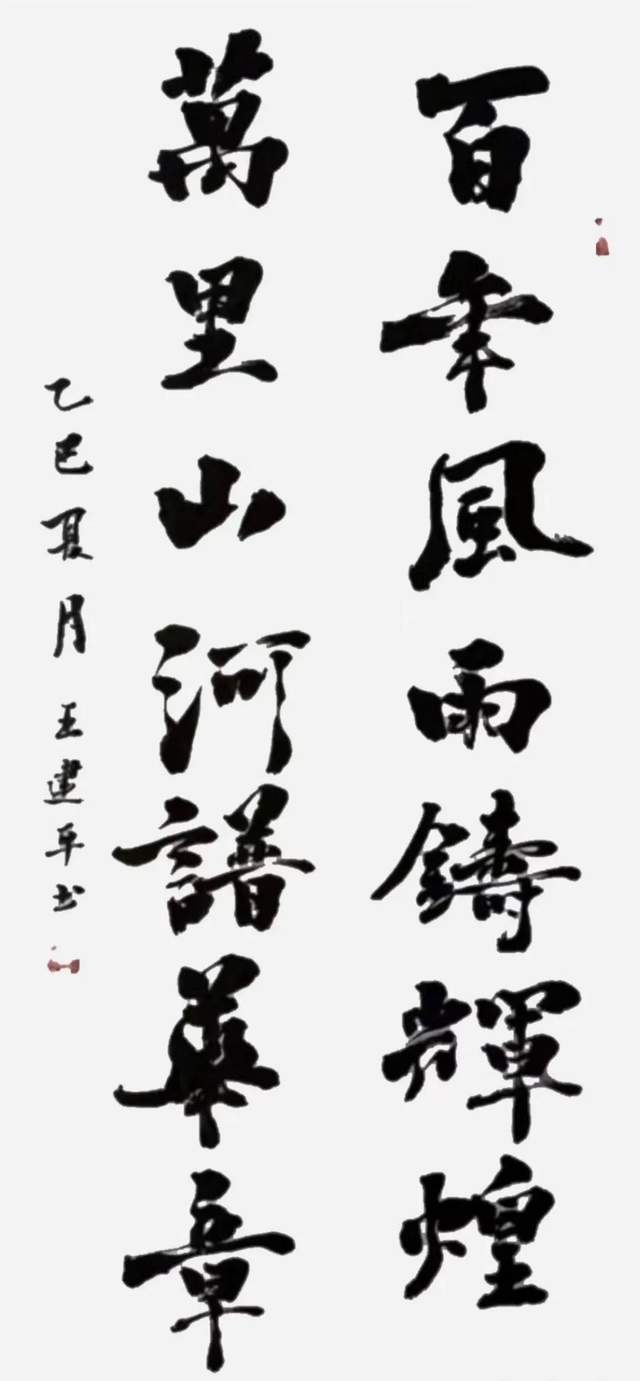 百年風雨鑄輝煌
萬里山河譜華章
乙巳夏月王建平书